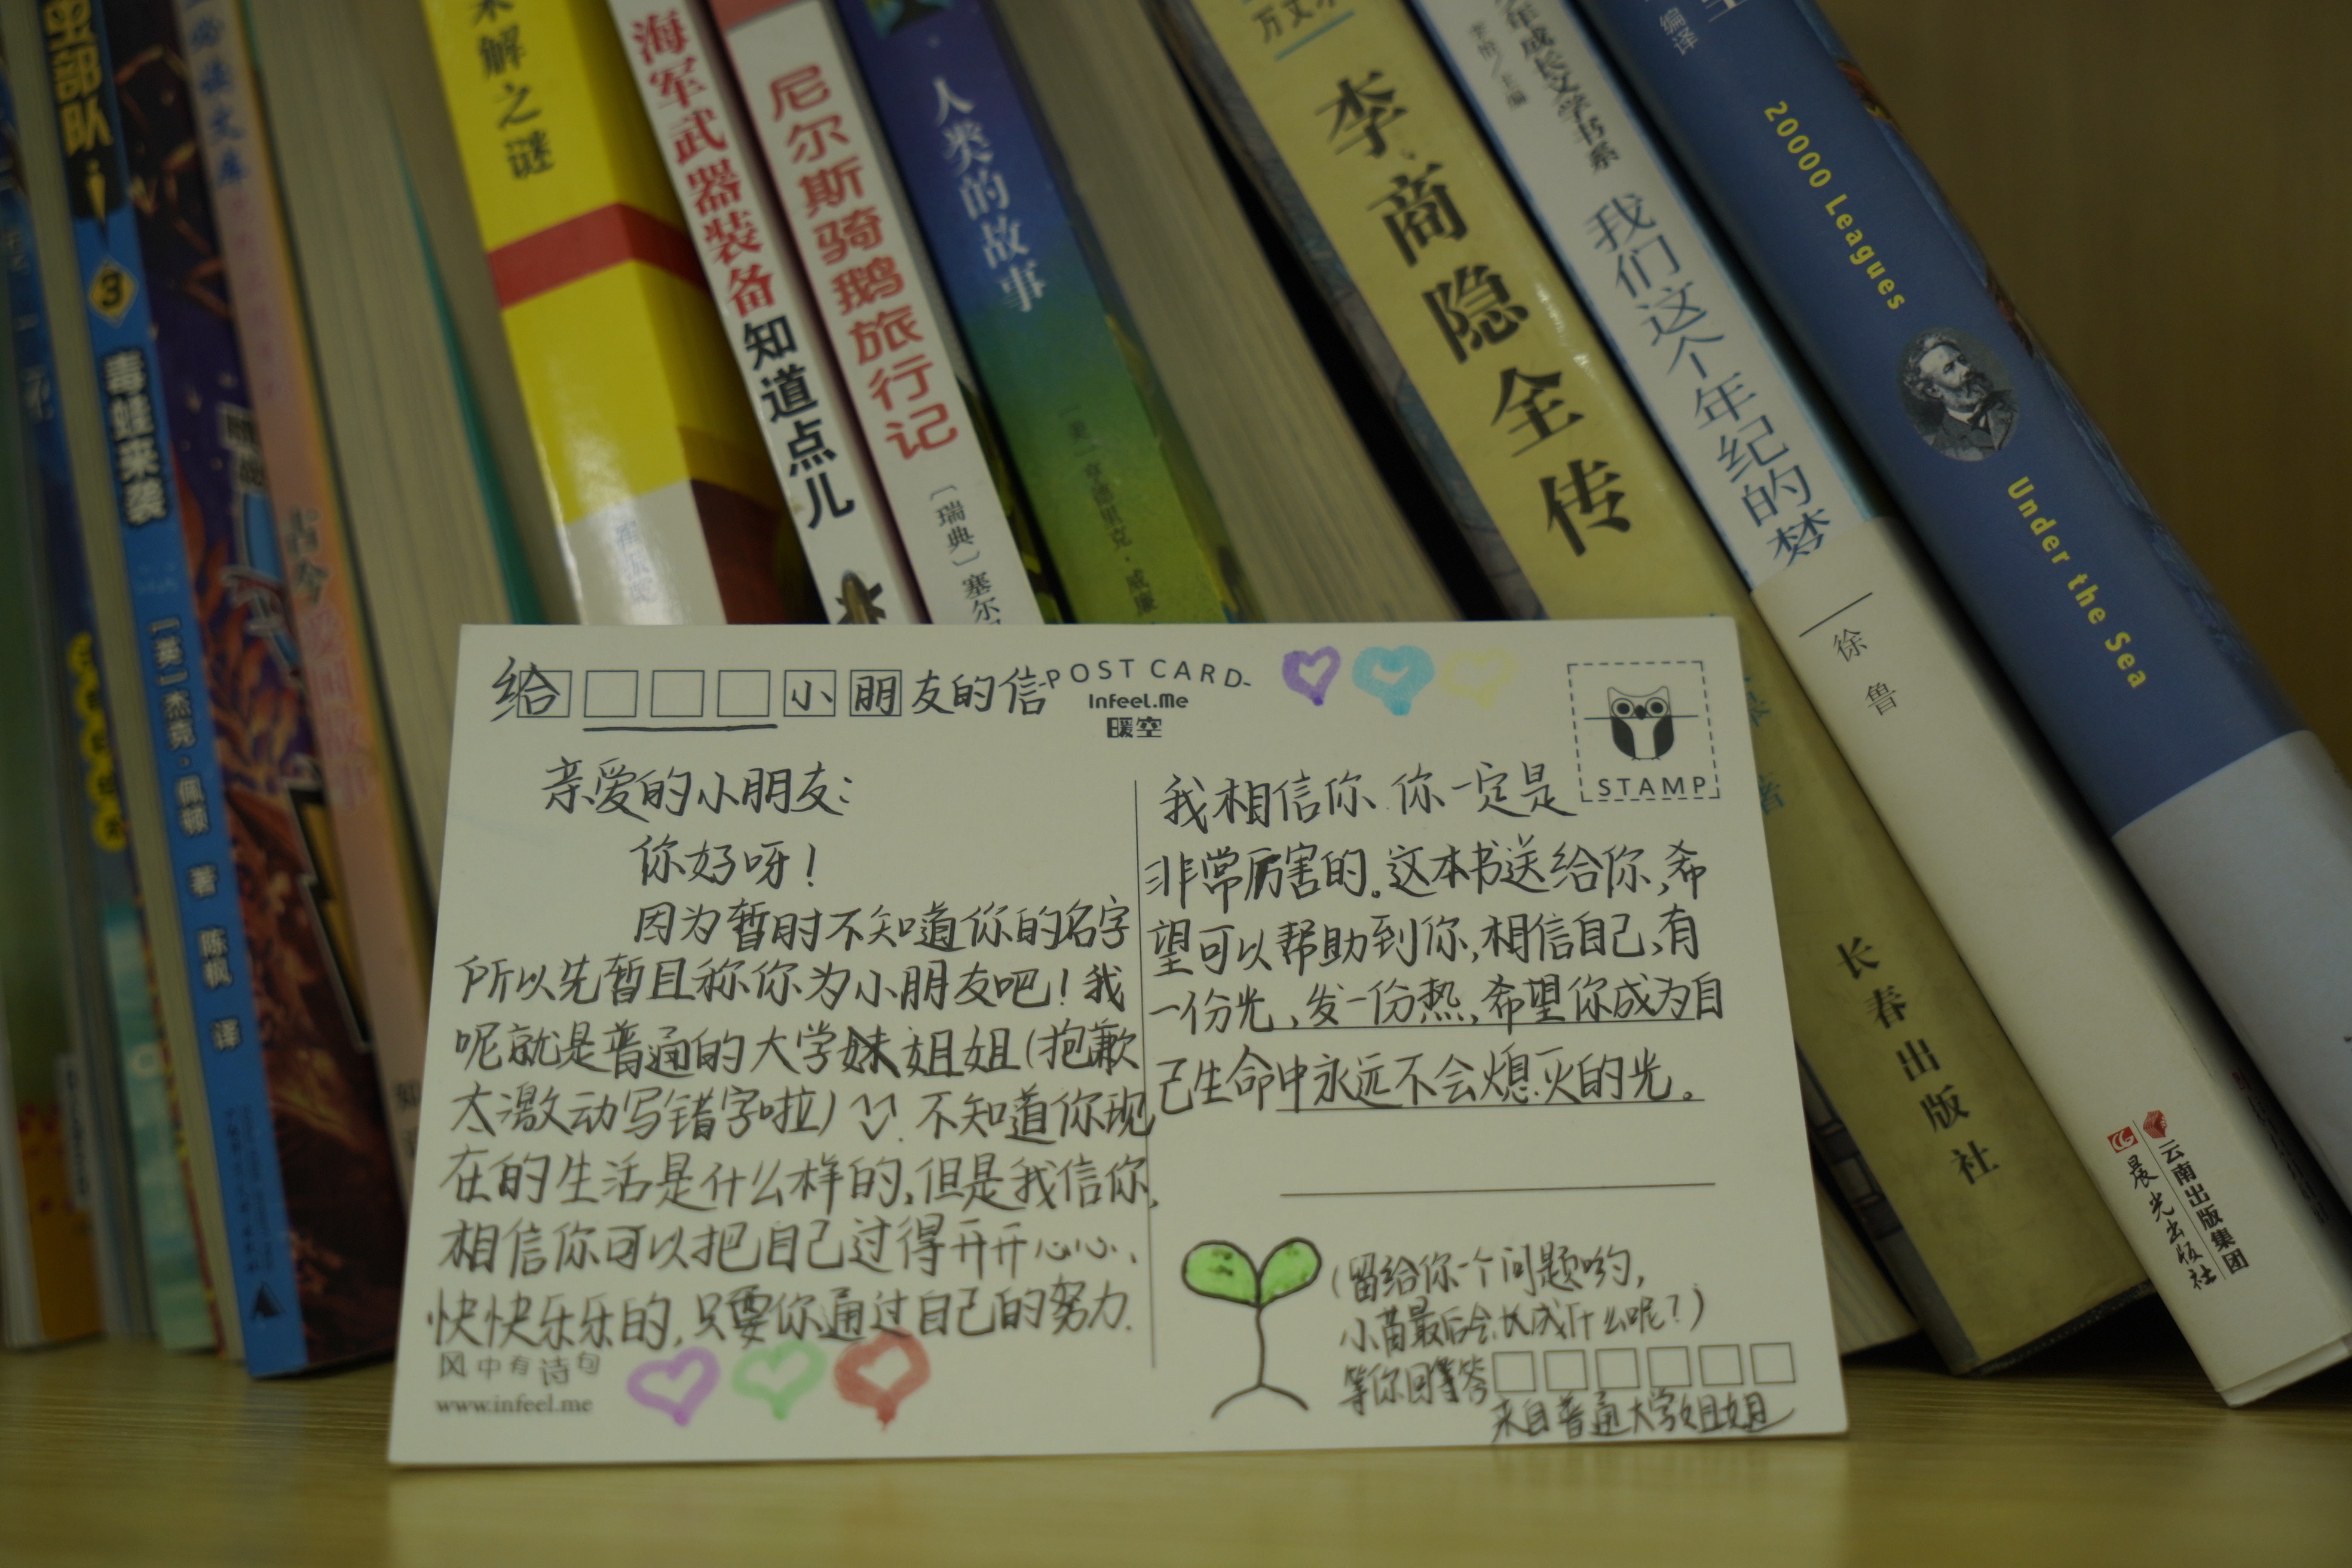 未解之谜
海军武器装备知道点儿
尼尔斯骑鹅旅行记
〔瑞典〕塞尔
人类的故事
李商隐全传
长春出版社
年成长文学书系
我们这个年纪的梦
徐鲁
云南出版集团
晨光出版社
编译
20000 Leagues
Under the Sea
虫部队
3
毒蛙来袭
[英]杰克·佩顿 著 陈枫 译
必读文库
古今
给 小朋友的信
-POST CARD-
InFeel.Me
暖空
STAMP
亲爱的小朋友:
你好呀!
因为暂时不知道你的名字
所以先暂且称你为小朋友吧!我
呢就是普通的大学妹姐姐(抱歉
太激动写错字啦) 不知道你现
在的生活是什么样的,但是我信你,
相信你可以把自己过得开开心心、
快快乐乐的,只要你通过自己的努力.
风中有诗句
www.infeel.me
我相信你 你一定是
非常厉害的。这本书送给你,希
望可以帮助到你,相信自己,有
一份光,发一份热,希望你成为自
己生命中永远不会熄灭的光。
(留给你一个问题哟,
小苗最后会长成什么呢?)
等你回答
来自普通大学姐姐